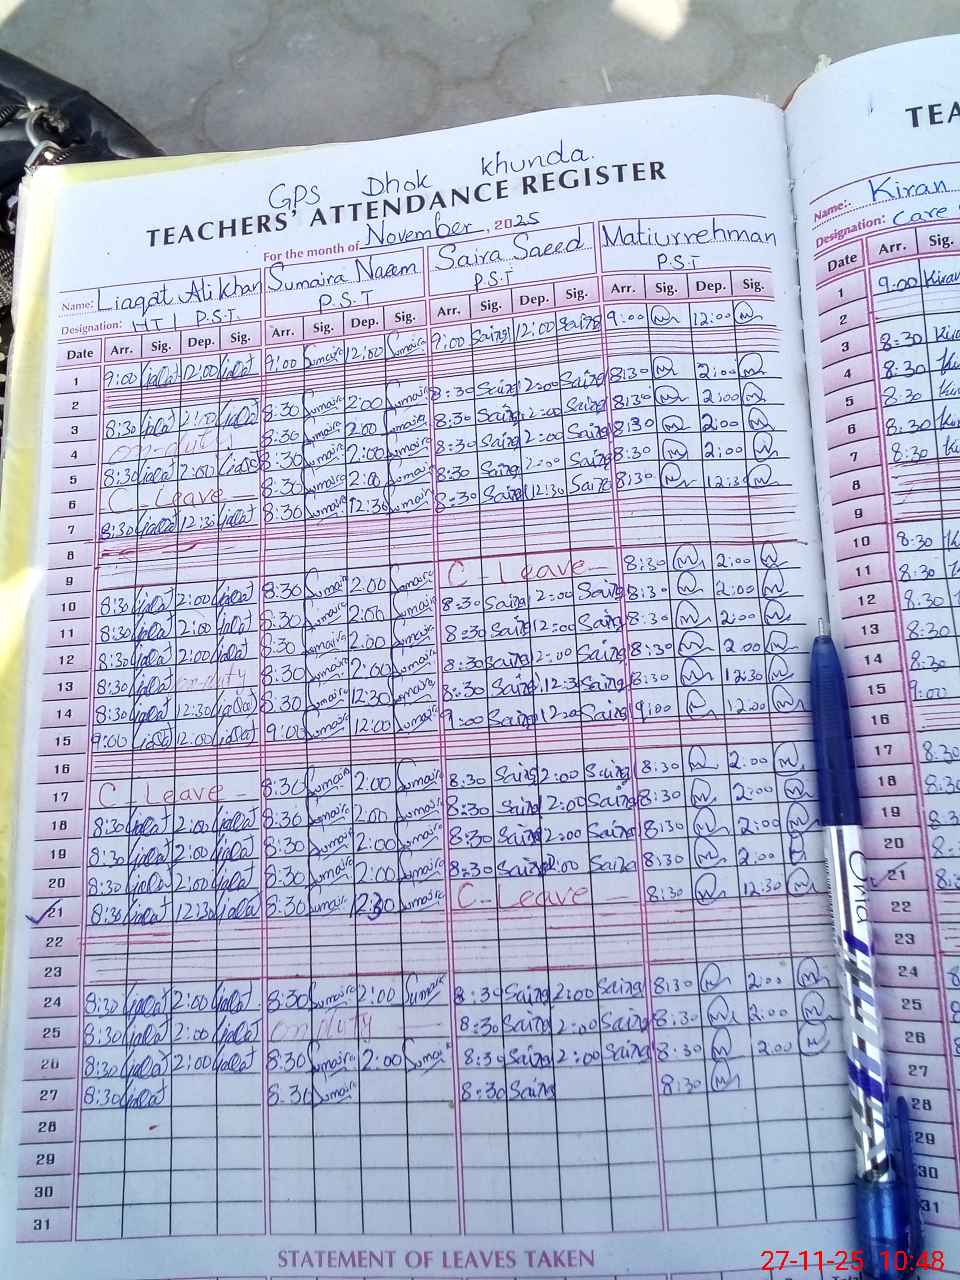 GPS Dhok Khunda.
TEACHERS' ATTENDANCE REGISTER
For the month of November, 2025
Name: Liaqat Ali Khan Sumaira Naeem Saira Saeed Matiurrehman
Designation: HT | P.S.T. P.S.T P.S.T P.S.T
Date Arr. Sig. Dep. Sig. Arr. Sig. Dep. Sig. Arr. Sig. Dep. Sig. Arr. Sig. Dep. Sig.
1 9:00 12:00 9:00 Sumaira 12:00 Sumaira 9:00 Saira 12:00 Saira 9:00 12:00
2
3 8:30 2:00 8:30 Sumaira 2:00 Sumaira 8:30 Saira 2:00 Saira 8:30 2:00
4 on-duty 8:30 Sumaira 2:00 Sumaira 8:30 Saira 2:00 Saira 8:30 2:00
5 8:30 2:00 8:30 Sumaira 2:00 Sumaira 8:30 Saira 2:00 Saira 8:30 2:00
6 C-Leave- 8:30 Sumaira 2:00 Sumaira 8:30 Saira 2:00 Saira 8:30 2:00
7 8:30 12:30 8:30 Sumaira 12:30 Sumaira 8:30 Saira 12:30 Saira 8:30 12:30
8
9
10 8:30 2:00 8:30 Sumaira 2:00 Sumaira C-Leave- 8:30 2:00
11 8:30 2:00 8:30 Sumaira 2:00 Sumaira 8:30 Saira 2:00 Saira 8:30 2:00
12 8:30 2:00 8:30 Sumaira 2:00 Sumaira 8:30 Saira 12:00 Saira 8:30 2:00
13 8:30 on-duty 8:30 Sumaira 2:00 Sumaira 8:30 Saira 2:00 Saira 8:30 2:00
14 8:30 12:30 8:30 Sumaira 12:30 Sumaira 8:30 Saira 12:30 Saira 8:30 12:30
15 9:00 12:00 9:00 Sumaira 12:00 Sumaira 9:00 Saira 12:00 Saira 9:00 12:00
16
17 C-Leave- 8:30 Sumaira 2:00 Sumaira 8:30 Saira 2:00 Saira 8:30 2:00
18 8:30 2:00 8:30 Sumaira 2:00 Sumaira 8:30 Saira 2:00 Saira 8:30 2:00
19 8:30 2:00 8:30 Sumaira 2:00 Sumaira 8:30 Saira 2:00 Saira 8:30 2:00
20 8:30 2:00 8:30 Sumaira 2:00 Sumaira 8:30 Saira 2:00 Saira 8:30 2:00
21 8:30 12:30 8:30 Sumaira 12:30 Sumaira C-Leave- 8:30 12:30
22
23
24 8:30 2:00 8:30 Sumaira 2:00 Sumaira 8:30 Saira 2:00 Saira 8:30 2:00
25 8:30 2:00 on duty 8:30 Saira 2:00 Saira 8:30 2:00
26 8:30 2:00 8:30 Sumaira 2:00 Sumaira 8:30 Saira 2:00 Saira 8:30 2:00
27 8:30 8:30 Sumaira 8:30 Saira 8:30
28
29
30
31
STATEMENT OF LEAVES TAKEN
TEA
Name: Kiran
Designation: Care
Date Arr. Sig.
1 9:00 Kiran
2
3 8:30
4 8:30
5 8:30
6 8:30
7 8:30
8
9
10 8:30
11 8:30
12 8:30
13 8:30
14 8:30
15 9:00
16
17 8:30
18 8:30
19 8:30
20
21
22
23
24
25
26
27
28
29
30
31
27-11-25 10:48